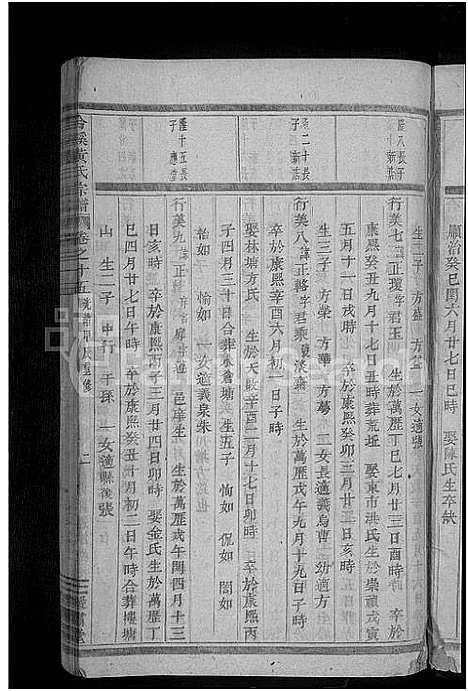 順治癸巳閏六月十七日巳時 娶陳氏生卒缺
生二子 方盛 方益 一女適張
行美七 諱正瓊 字君玉 生於萬歷丁巳七月廿三日酉時 卒於
康熙癸丑九月十七日丑時葬荒垤 娶東市洪氏生於崇禎戊寅
五月十一日戌時 卒於康熙癸卯三月廿二日亥時
生三子 方榮 方華 方夢 二女長適義烏曹 幼適方
行美八 諱正輅 字君乘 號淡齋 生於萬歷戊午九月十九日子時
卒於康熙辛酉六月初一日子時
娶林塘方氏 生於天啟辛酉二月十七日卯時 卒於康熙丙
子四月三十日合葬
塘 生五子 恂如 侃如 誾如
怡如 愉如 一女適義泉朱
行美九 諱正 字 邑庠生 生於萬歷戊午閏四月十三
日亥時 卒於康熙丙子三月廿四日卯時 娶金氏生於萬歷丁
巳四月廿七日午時 卒於康熙癸丑十月初二日午時合葬樓塘
山 生二子 中行 干孫 一女適縣後張
隆八長子
隆二十長子
隆十五長子
黃氏宗譜
卷之十五